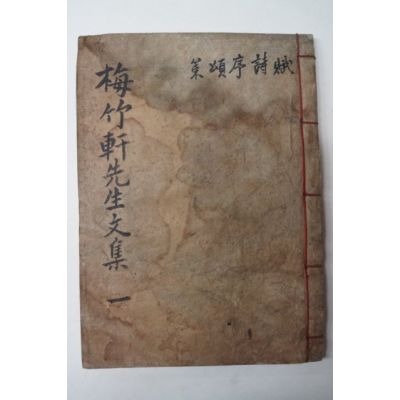 梅竹軒先生文集 一
賦詩序頌策